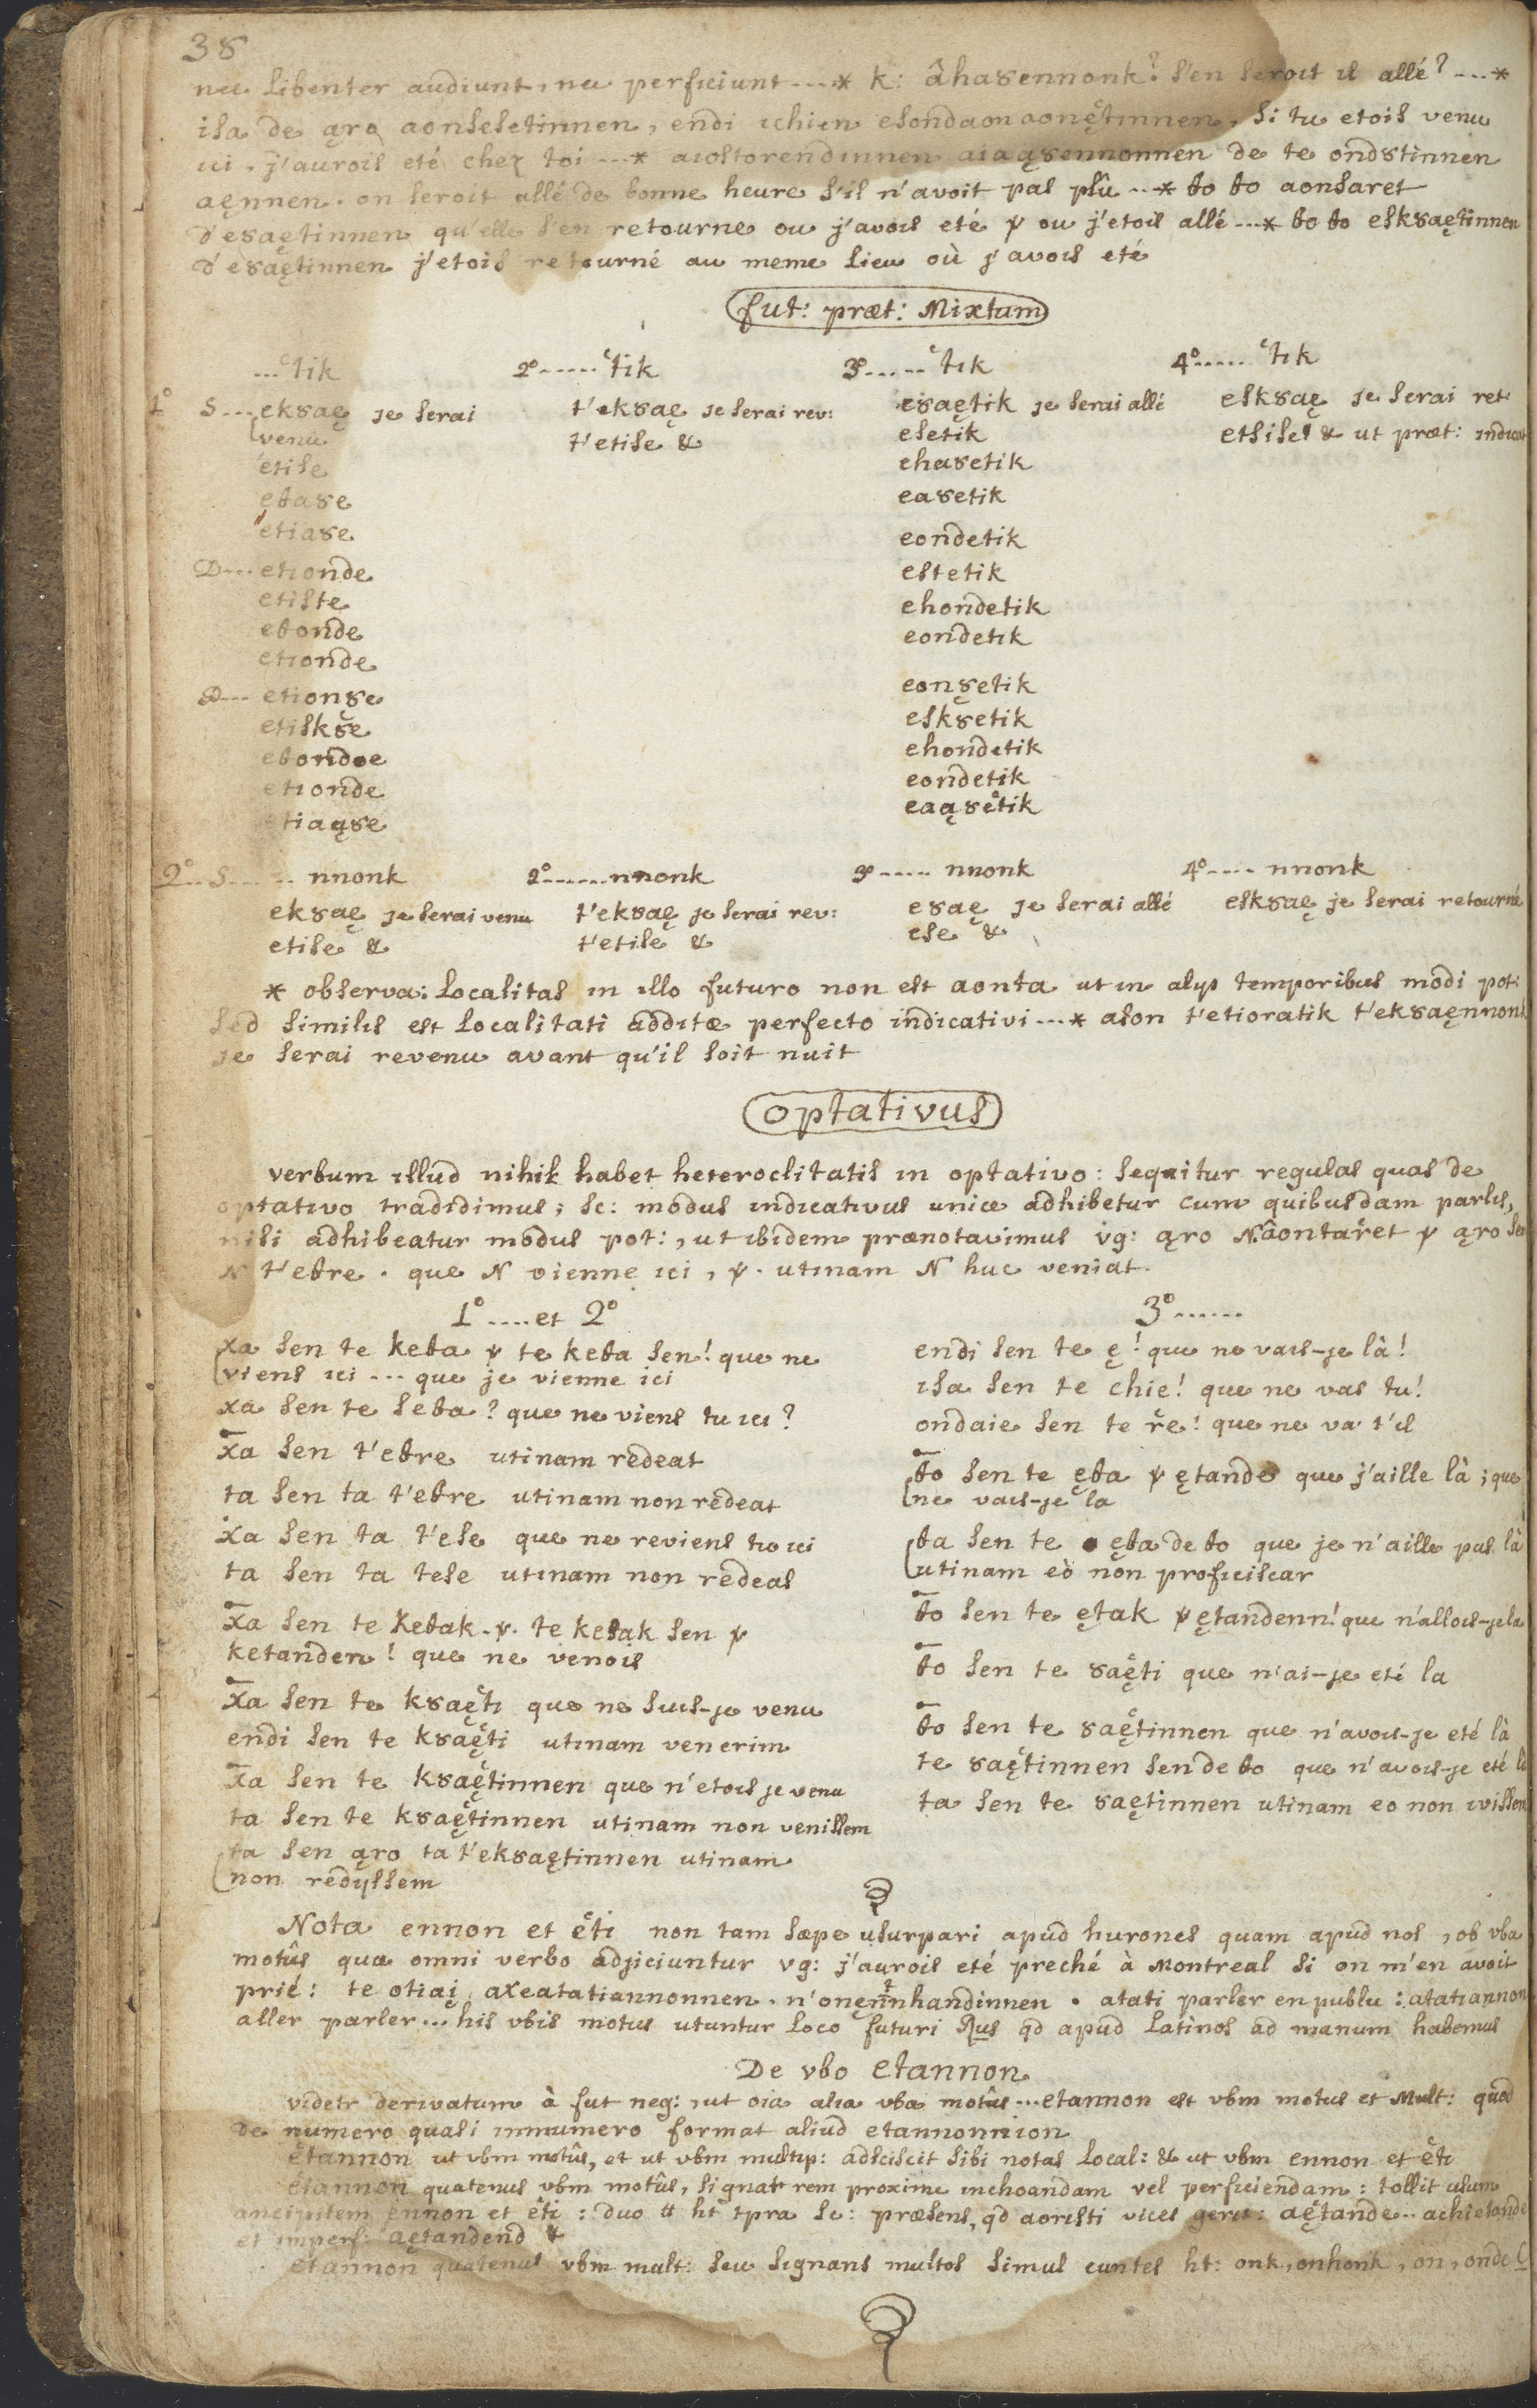 38
nec libenter audiunt, nec perficiunt ....* k: âhaȣennonk? s'en seroit il allé? ....*
isa de ąro aonsesetinnen, endi ichien esondaon aonę̔tinnen, si tu etois venu
ici, j'aurois eté chez toi ....* aiostorendinnen aiaąȣennonnen de te ondȣtinnen
aęnnen. on seroit allé de bonne heure s'il n'avoit pas plû ...* ꞇo ꞇo aonsaret
d'eȣaętinnen qu'elle s'en retourne ou j'avois eté ꝟ ou j'etois allé ....* ꞇo ꞇo eskȣaętinnen
d'eȣaętinnen j'etois retourné au meme lieu où j'avois eté
fut: præt: Mixtum
...̔tik 2°...... ̔tik 3°..... ̔tik 4°...... ̔tik
1° S.... ekȣaę je serai t'ekȣaę je serai rev: eȣaętik je serai allé eskȣaę je serai ret:
venu t'etise & esetik etsise & ut præt: indicat
etise ehaȣetik
ęꞇaȣe eaȣetik
etiaȣe eondetik
D.... etionde estetik
etiste ehondetik
eꞇonde eondetik
etionde
D.... etionȣ̨e eonȣ̨etik
etiskȣ̨e eskȣ̨etik
eꞇondoe ehondetik
etionde eondetik
etiaąȣe eaąȣe̔tik
2°.. S..... nnonk 2°...... nnonk 3°..... nnonk 4°.... nnonk
ekȣaę je serai venu t'ekȣaę je serai rev: eȣaę je serai allé eskȣaę je serai retourné
etise & t'etise & ese &
* observa: Localitas in illo futuro non est aonta ut in alys temporibus modi pot:
sed similis est Localitati additæ perfecto indicativi ...* ason t'etioratik t'ekȣaęnnonk
je serai revenu avant qu'il soit nuit
optativus
verbum illud nihil habet heteroclitatis in optativo: sequitur regulas quas de
optativo tradidimus; sc: modus indicativus unice adhibetur cum quibusdam parlis,
nisi adhibeatur modus pot:, ut ibidem prænotavimus vg: ąro N. âontaret ꝟ ąro sen
N t'eꞇre. que N vienne ici, ꝟ. utinam N huc veniat.
1°.... et 2°
xa sen te keꞇa ꝟ te keꞇa sen! que ne
viens ici ... que je vienne ici
xa sen te seꞇa? que ne viens tu ici?
xa sen t'eꞇre utinam redeat
ta sen ta t'eꞇre utinam non redeat
xa sen ta t'ese que ne reviens tu ici
ta sen ta tese utinam non redeas
xa sen te keꞇak. ꝟ. te keꞇak sen ꝟ
ketanden! que ne venois
xa sen te kȣaę̔ti que ne suis-je venu
endi sen te kȣaę̔ti utinam venerim
xa sen te kȣaę̔tinnen que n'etois je venu
ta sen te kȣaę̔tinnen utinam non venissem
ta sen ąro ta t'ekȣaętinnen utinam
non redijssem
3°......
endi sen te ę! que ne vais-je là!
isa sen te chie! que ne vas tu!
ondaie sen te re̔! que ne va t'il
ꞇo sen te ęꞇa ꝟ ętande que j'aille là; que
ne vais-je la
ꞇa sen te ęꞇa de ꞇo que je n'aille pas là
utinam eò non proficiscar
ꞇo sen te ętak ꝟ ętandenn! que n'allois-je la
ꞇo sen te ȣaę̔ti que n'ai-je eté la
ꞇo sen te ȣaę̔tinnen que n'avois-je eté là
te ȣaę̔tinnen sen de ꞇo que n'avois-je eté là
ta sen te ȣaętinnen utinam eo non ivissem
Nota ennon et e̔ti non tam sæpe usurpari apud hurones quam apud nos, ob vba
motûs quæ omni verbo adjiciuntur vg: j'aurois eté preché à Montreal si on m'en avoit
prié: te otiaį, axeatatiannonnen. n'onęnnhandinnen. atati parler en public: atatiannon
aller parler ... his vbis motus utuntur Loco futuri Rus qd apud Latinos ad manum habemus
De vbo etannon
videtr derivatum à fut neg: ut oia alia vba motûs ... etannon est vbm motus et Mult: quod
de numero quasi innumero format aliud etannonnion
e̔tannon ut vbm motûs, et ut vbm multip: adsciscit sibi notas local: & ut vbm ennon et e̔ti
e̔tannon quatenus vbm motûs, signat rem proxime inchoandam vel perficiendam: tollit usum
ancipitem ennon et e̔ti: duo tt ht tpra sc: præsens, qd aoristi vices gerit: aę̔tande.. achietande
et imperf: aętandend &
etannon quatenus vbm mult: seu signans multos simul euntes ht: onk, onhonk, on, onde